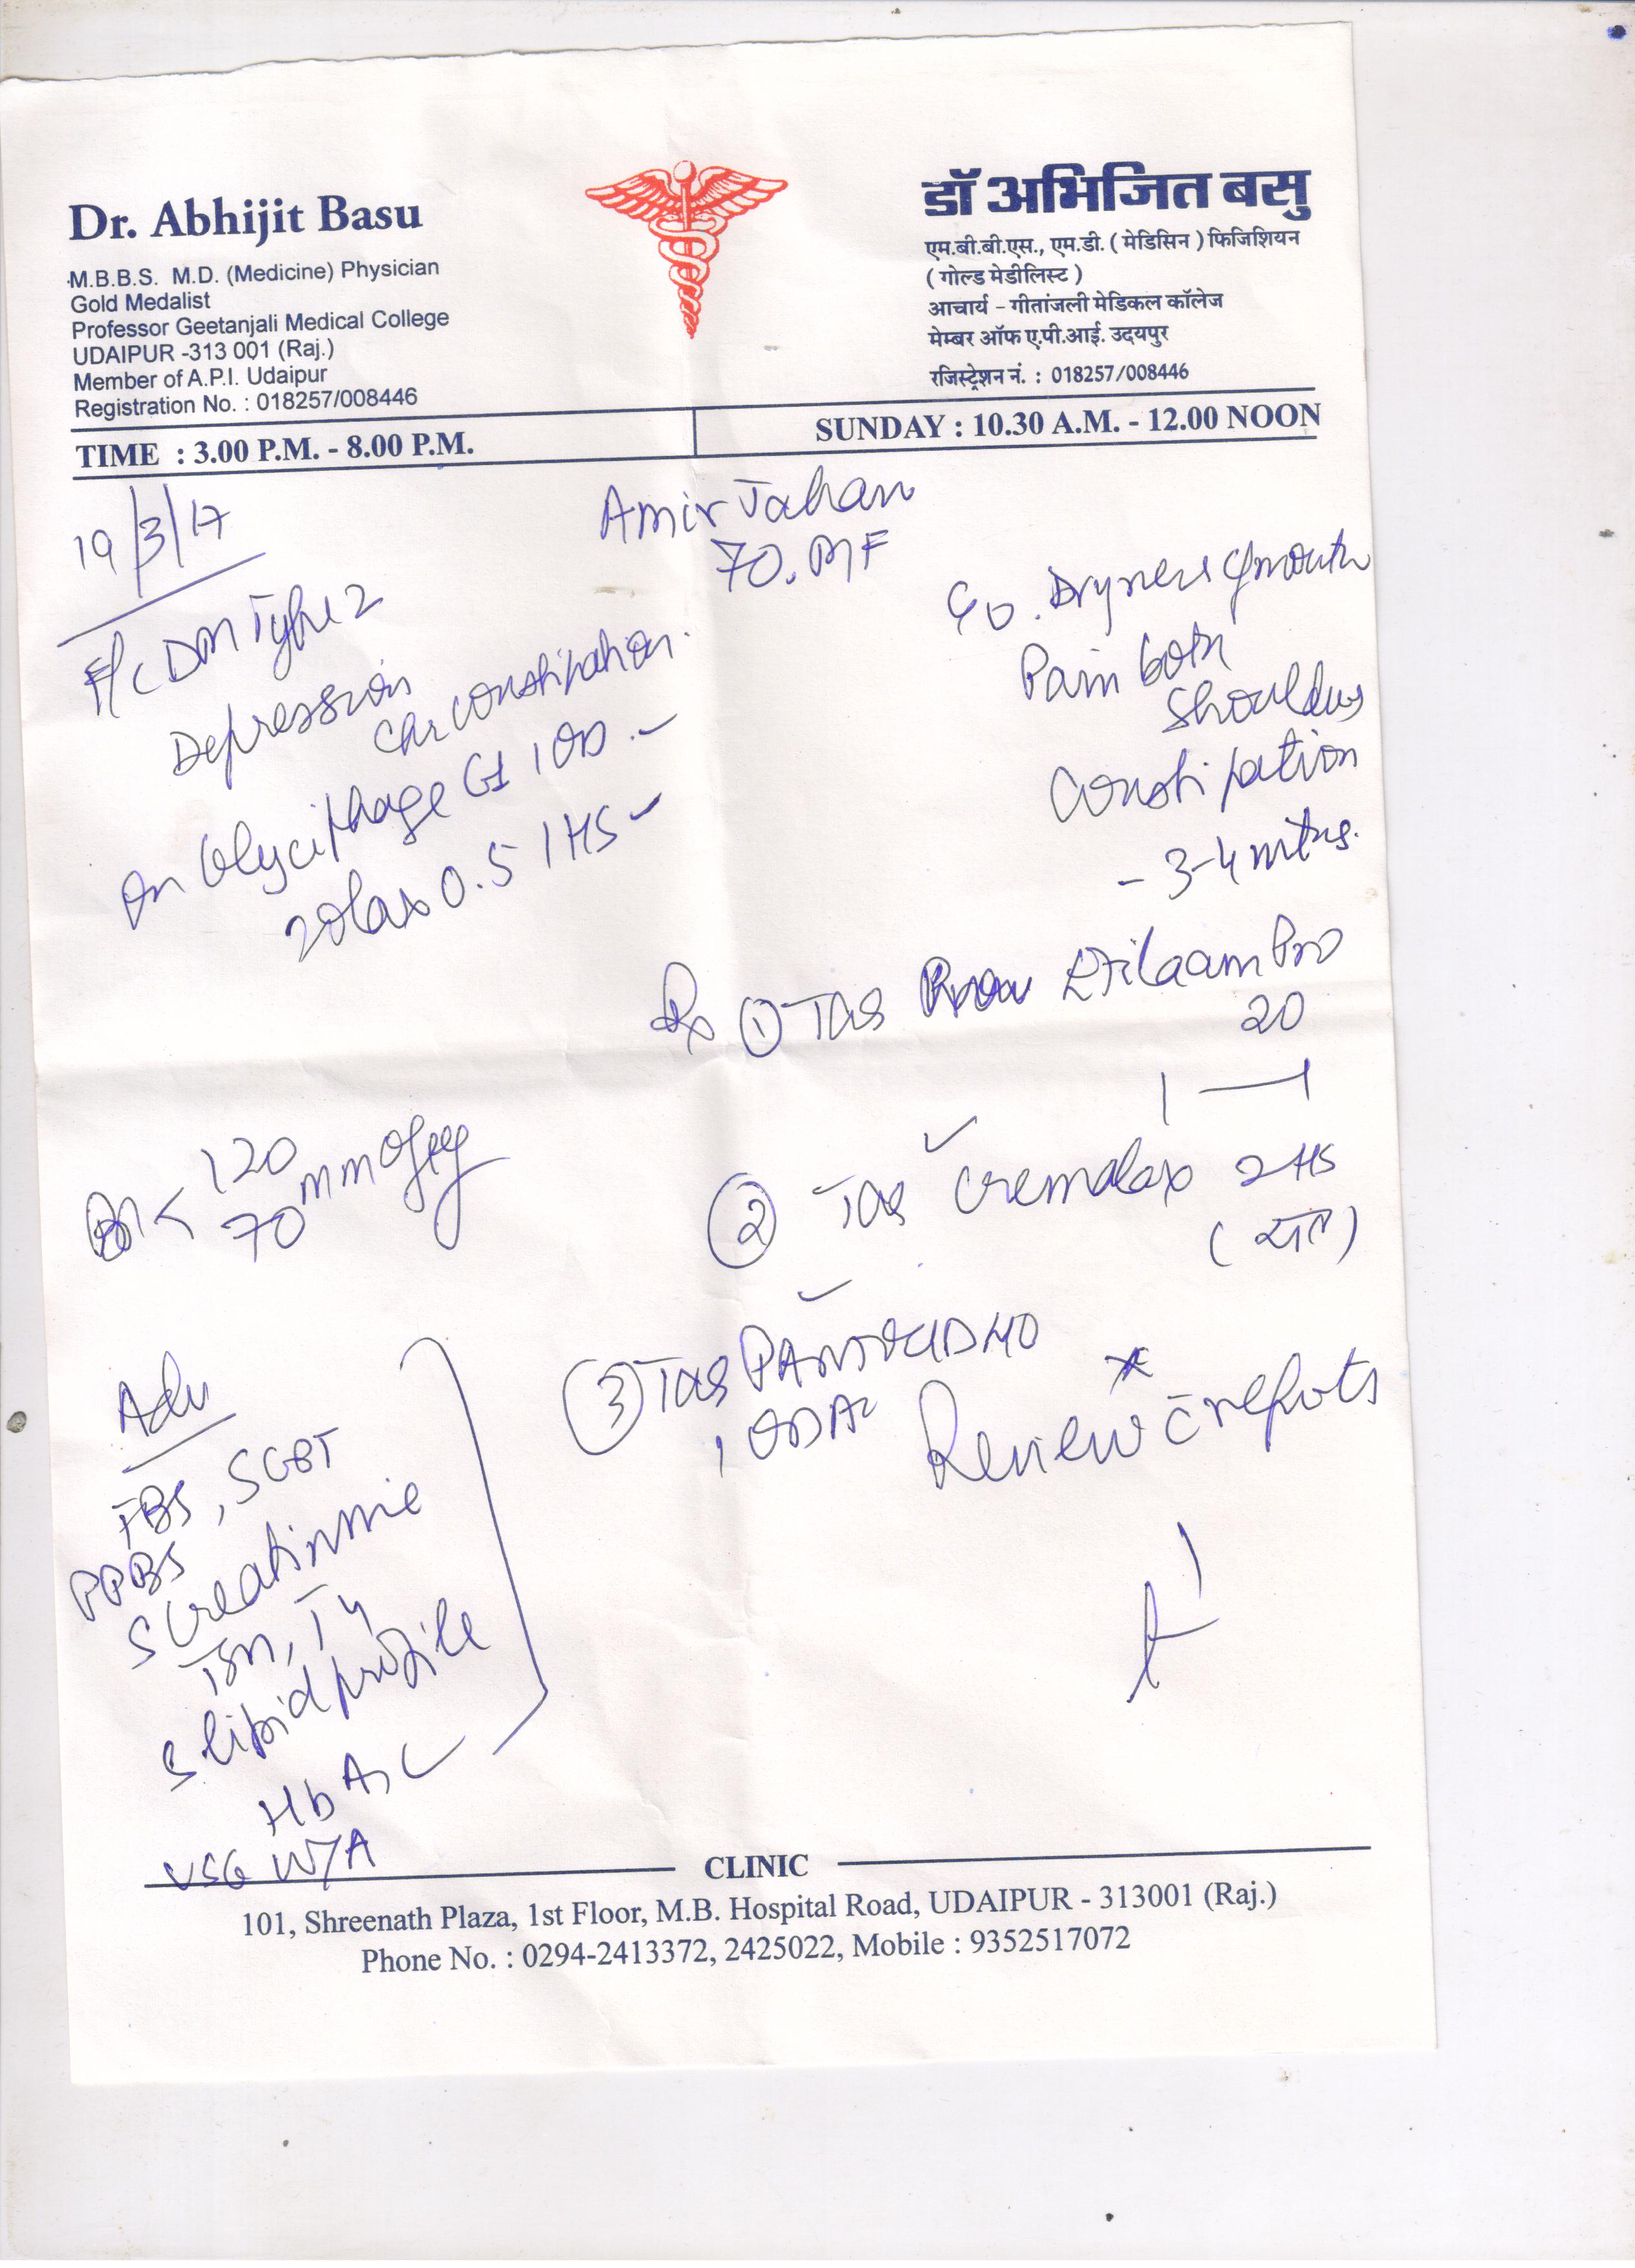 Dr. Abhijit Basu
M.B.B.S. M.D. (Medicine) Physician
Gold Medalist
Professor Geetanjali Medical College
UDAIPUR -313 001 (Raj.)
Member of A.P.I. Udaipur
Registration No. : 018257/008446
डॉ अभिजित बसु
एम.बी.बी.एस., एम.डी. ( मेडिसिन ) फिजिशियन
( गोल्ड मेडीलिस्ट )
आचार्य - गीतांजली मेडिकल कॉलेज
मेम्बर ऑफ ए.पी.आई. उदयपुर
रजिस्ट्रेशन नं. : 018257/008446
TIME : 3.00 P.M. - 8.00 P.M.
SUNDAY : 10.30 A.M. - 12.00 NOON
19/3/17
Amir Jahan
70. F
DM Type 2
Depression
Chr constipation.
On Glyciphage G1 1 OD -
zolax 0.5 1 HS -
C/o. Dryness of mouth
Pain both
shoulders
Constipation
- 3-4 mths.
Rx ① Tab Etilaam Pro
20
1 — 1
② Tab Cremalax 2 HS
③ Tab PANTOCID 40
1 OD AC
* Review c̄ reports
120
70 mm of Hg
Adv
FBS, SGPT
PPBS
S Creatinine
TSH, T4
S lipid profile
HbA1C
USG W/A
CLINIC
101, Shreenath Plaza, 1st Floor, M.B. Hospital Road, UDAIPUR - 313001 (Raj.)
Phone No. : 0294-2413372, 2425022, Mobile : 9352517072